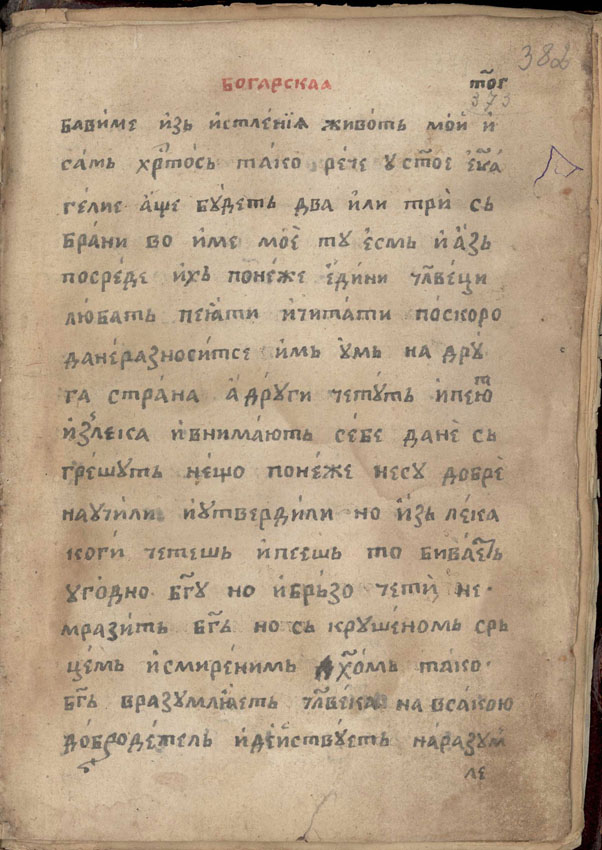 382
БОГАРСКАА т҃ог
373
бави́ме и҆зь и҆стлѣ́нїѧ живо́ть мо́й и҆
са́мь хр҇то́сь та́ко ре́че у ст҃ое е҆ѵ҃а́
ге́лие а҆́ще бꙋ́деть два и҆́ли три̏ сь
бра́ни во и҆́ме мое̏ тꙋ е҆́смь и҆ а҆́зь
посре́де и҆́хь поне́же е҆ди́ни чл҃ве́ци
лю́бать пеꙗ́ти и҆чита́ти по́скоро
дане́разноси́тсе и҆́мь ꙋ҆́мь на дрꙋ́
га стра́на а҆ дрꙋ́ги четꙋ́ть и҆пею́т
и҆зле́ка и҆внима́ють се́бе дане̏ сь
гре́шꙋть не́що поне́же несꙋ до́бре̏
наꙋчи́ли и҆ꙋтверди́ли но и҆́зь ле́ка
коги́ че́тешь и҆пе́ешь то бива́еть
ꙋго́дно бг҃ꙋ но и҆бръ́зо чети̏ не
мрази́ть бг҃ь но сь крꙋше́номь срь
це́мь и҆смире́нимь дх҃о́мь та́ко
бг҃ь вразꙋмлꙗ́еть чл҃ве́ка на вса́кою
до́бродѣ́тель и҆дѣ́йствꙋеть на́разꙋм
ле